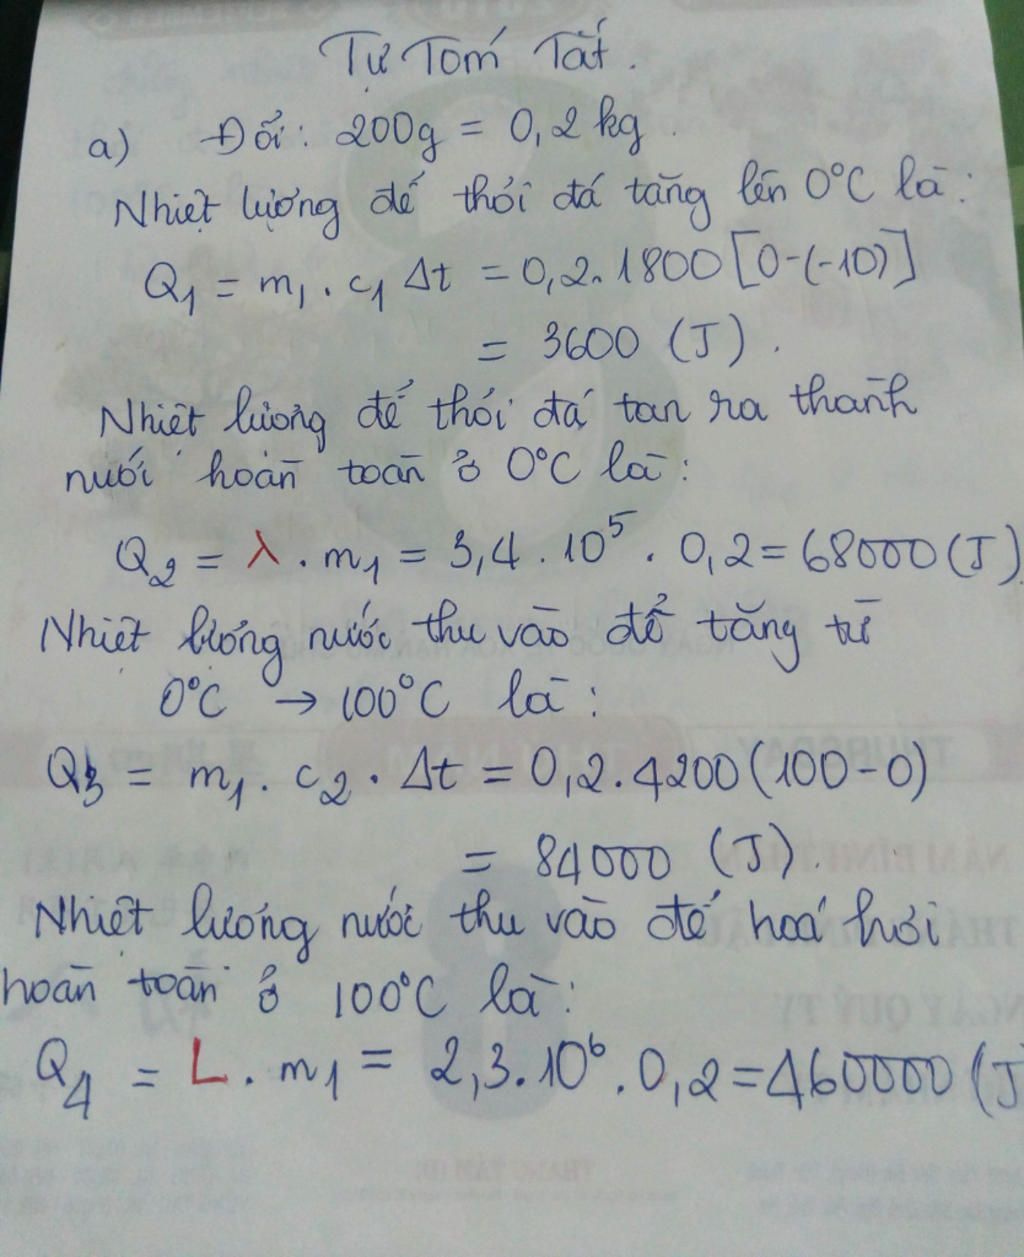 Tự Tóm Tắt.
a) Đổi: 200g = 0,2 kg.
Nhiệt lượng để thỏi đá tăng lên 0°C là:
Q₁ = m₁ . c₁ Δt = 0,2. 1800 [0-(-10)]
= 3600 (J).
Nhiệt lượng để thỏi đá tan ra thành
nước hoàn toàn ở 0°C là:
Q₂ = λ . m₁ = 3,4 . 10⁵ . 0,2 = 68000 (J)
Nhiệt lượng nước thu vào để tăng từ
0°C → 100°C là:
Q₃ = m₁ . c₂ . Δt = 0,2. 4200 (100-0)
= 84000 (J).
Nhiệt lượng nước thu vào để hoá hơi
hoàn toàn ở 100°C là:
Q₄ = L . m₁ = 2,3.10⁶ . 0,2 = 460000 (J